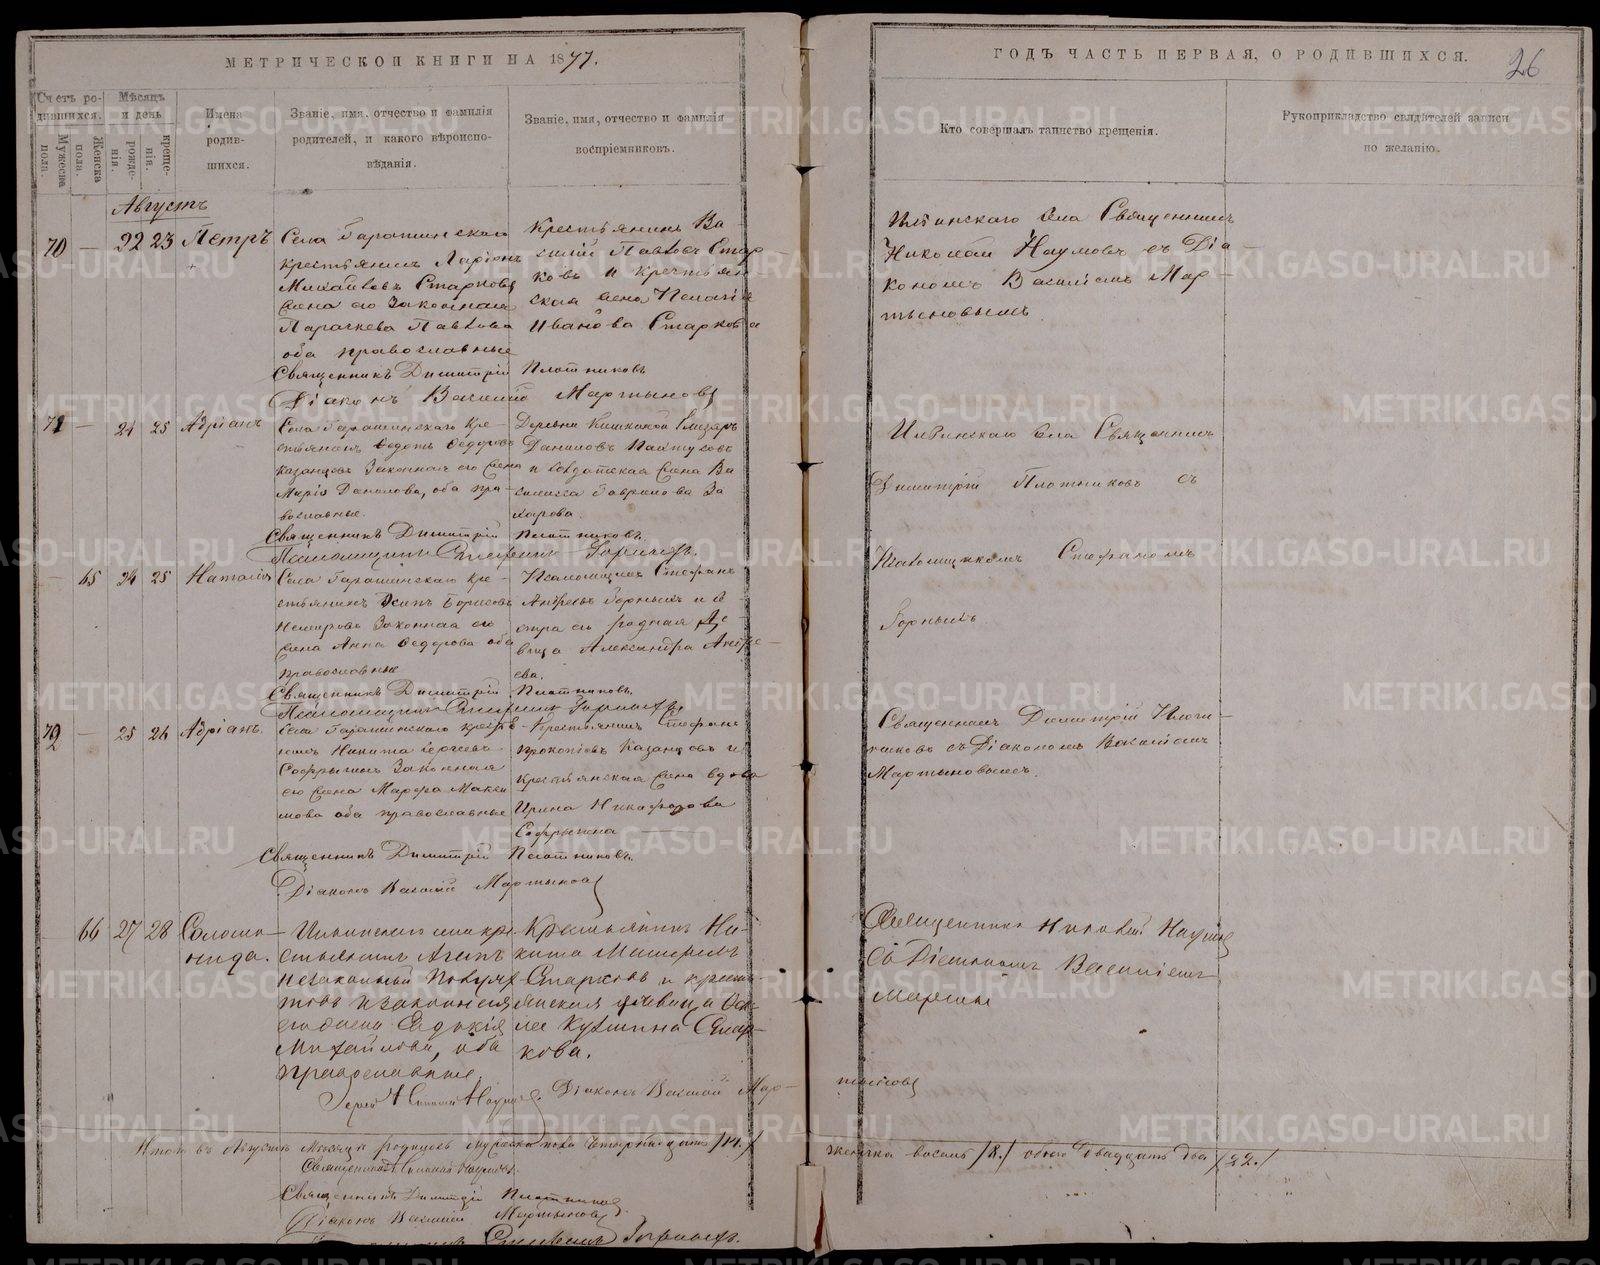 МЕТРИЧЕСКОЙ КНИГИ НА 1877.
ГОДЪ ЧАСТЬ ПЕРВАЯ, О РОДИВШИХСЯ.
26
Счетъ родившихся.
Мужеска пола.
Женска пола.
Мѣсяцъ и день
рожденія.
крещенія.
Имена родившихся.
Званіе, имя, отчество и фамилія
родителей, и какого вѣроиспо-
вѣданія.
Званіе, имя, отчество и фамилія
воспріемниковъ.
Кто совершалъ таинство крещенія.
Рукоприкладство свидѣтелей записи
по желанію.
Августъ
70 — 22 23 Петръ
Села Гарашинскаго
крестьянинъ Ларіонъ
Михайловъ Старковъ
жена его законная
Параскева Павлова
оба православные
Крестьянинъ Ва-
силій Павловъ Стар-
ковъ и крестьян
ская жена Пелагія
Иванова Старкова
Священникъ Димитрій Плотниковъ
Діаконъ Василій Мартыновъ
Ильинскаго села Священникъ
Николай Наумовъ съ Діа-
кономъ Василіемъ Мар-
тыновымъ
71 — 24 25 Адріанъ
Села Гарашинскаго кре-
стьянинъ Федотъ Федоровъ
Казанцевъ законная его жена
Марія Данилова, оба пра-
вославные.
Даниловъ
и солдатская жена Ва
силисса Гаврилова За
харова.
Священникъ Димитрій Плотниковъ.
Псаломщикъ Стефанъ Горныхъ.
Ильинскаго села Священникъ
Димитрій Плотниковъ съ
Псаломщикомъ Стефаномъ
Горныхъ
— 65 24 25 Наталія
Села Гарашинскаго кре-
стьянинъ Осипъ Борисовъ
законная его
жена Анна Федорова оба
православные
Псаломщикъ Стефанъ
Андреевъ Горныхъ и се
стра его родная Дѣ-
вица Александра Андре-
ева.
Священникъ Димитрій Плотниковъ.
Псаломщикъ Стефанъ Горныхъ
72 — 25 26 Адріанъ.
Села Гарашинскаго крестья-
нинъ Никита Сергеевъ
Софрыгинъ законная
его жена Марфа Макси
мова оба православные
Крестьянинъ Стефанъ
Прокопіевъ Казанцевъ и
крестьянская жена вдова
Ирина Никифорова
Софрыгина
Священникъ Димитрій Плотниковъ.
Діаконъ Василій Мартыновъ
Священникъ Димитрій Плот-
никовъ съ Діакономъ Василіемъ
Мартыновымъ.
66 27 28 Соломо-
нида.
Ильинскаго села кре-
стьянинъ
незаконный
его жена Евдокія
Михайлова, оба
православные.
Крестьянинъ Ни-
кита
Старковъ и кресть-
янская дѣвица
Кузмина Стар-
кова.
Іерей Николай Наумовъ. Діаконъ Василій Мар-
тыновъ
Священникъ Николай Наумовъ
съ Діакономъ Василіемъ
Мартын
Итого въ Августѣ мѣсяцѣ родилось мужеска пола четырнадцать /14./
женска восемь /8./ обоего двадцать два /22./
Священникъ Николай Наумовъ.
Священникъ Димитрій Плотниковъ
Діаконъ Василій Мартыновъ.
Стефанъ Горныхъ.
METRIKI.GASO-URAL.RU